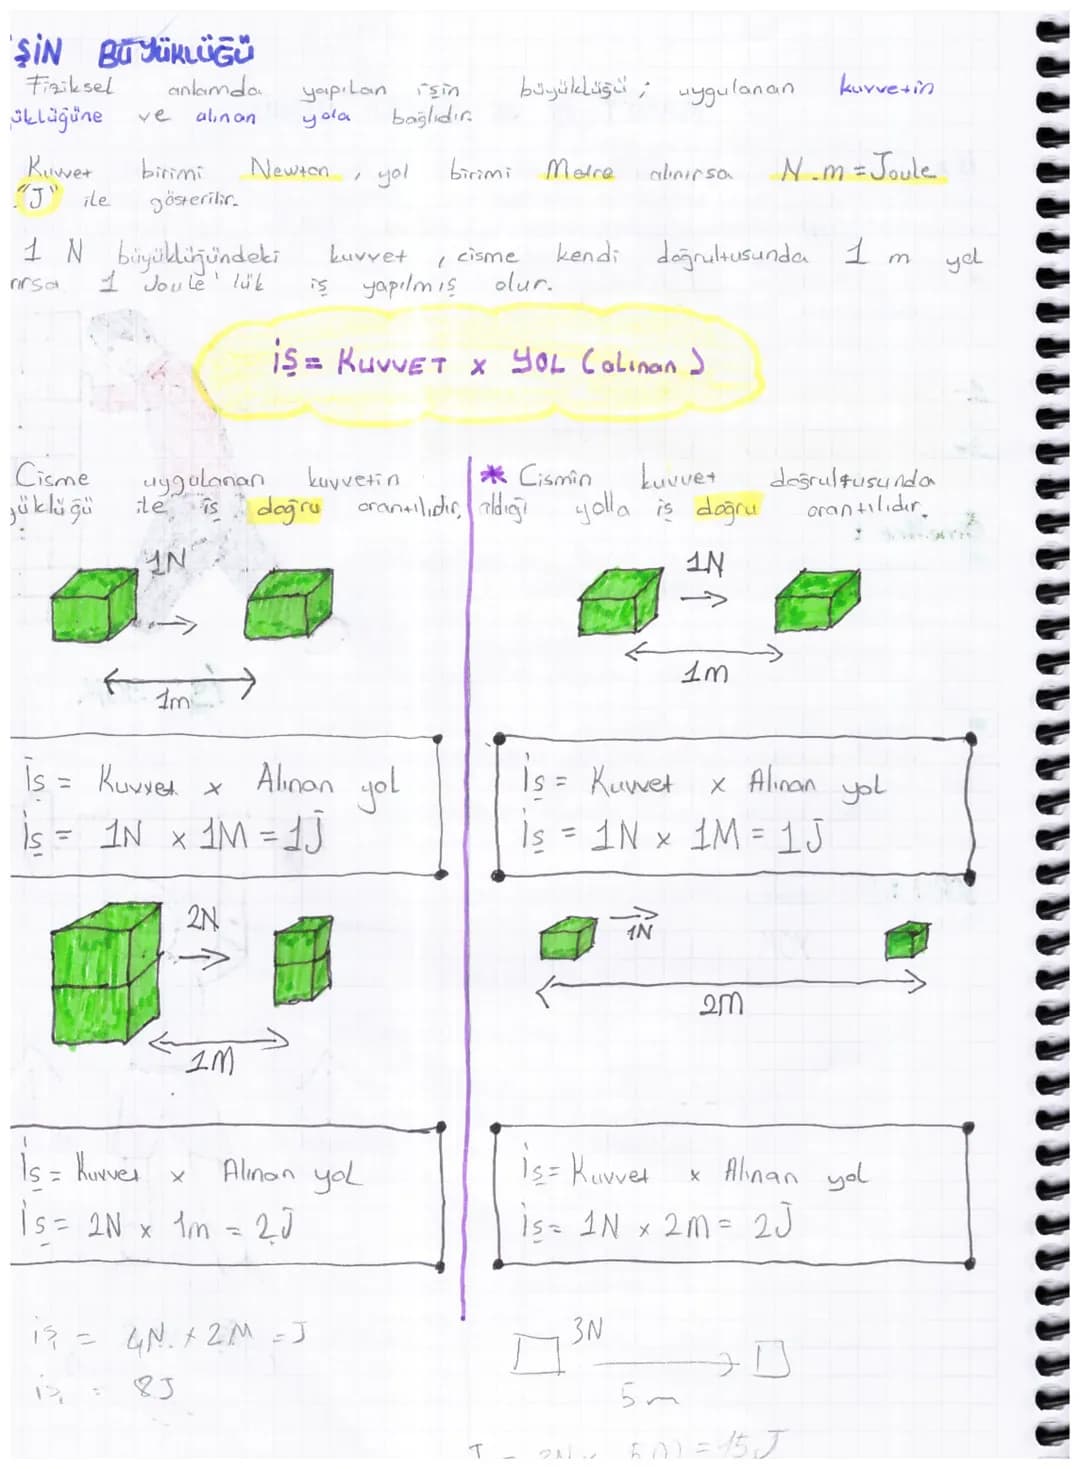 ŞİN BÜYÜKLÜĞÜ
Fiziksel anlamda yapılan işin büyüklüğü; uygulanan kuvvetin
üklüğüne ve alınan yola bağlıdır.
Kuvvet birimi Newton, yol birimi Metre alınırsa N.m=Joule
"J" ile gösterilir.
1 N büyüklüğündeki kuvvet, cisme kendi doğrultusunda 1 m yol
ırsa 1 Joule'lük iş yapılmış olur.
İŞ = KUVVET x YOL (alınan)
Cisme uygulanan kuvvetin
yüklüğü ile iş doğru orantılıdır,
1N
1m
İş = Kuvvet x Alınan yol
İş = 1N x 1M = 1J
2N
1M
İş = Kuvvet x Alınan yol
İş = 2N x 1m = 2J
iş = 4N. x 2M = J
iş = 8J
* Cismin kuvvet doğrultusunda
aldığı yolla iş doğru orantılıdır.
1N
1m
İş = Kuvvet x Alınan yol
İş = 1N x 1M = 1J
1N
2M
İş = Kuvvet x Alınan yol
İş = 1N x 2m = 2J
3N
5m
= 15J